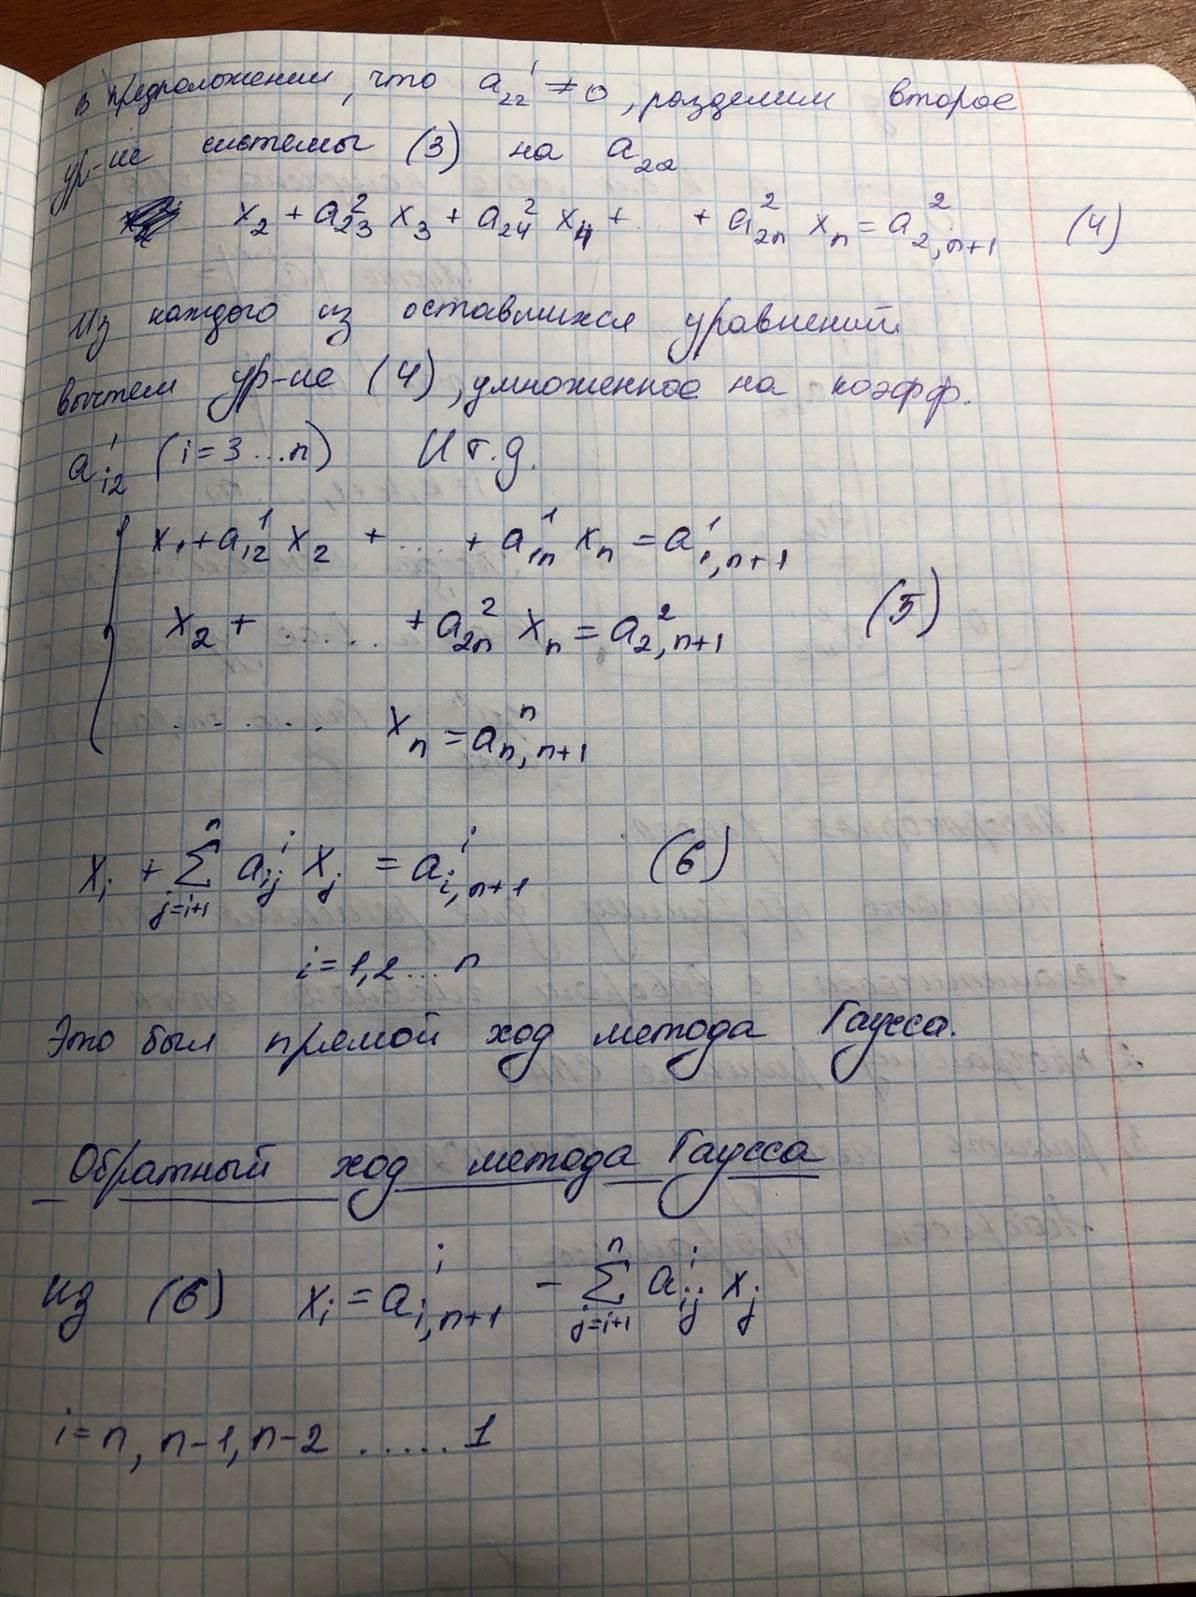 в предположении, что a₂₂¹ ≠ 0, разделим второе
ур-ие системы (3) на a₂₂
x₂ + a₂₃² x₃ + a₂₄² x₄ + ... + a₂ₙ² xₙ = a²₂,ₙ₊₁ (4)
Из каждого из оставшихся уравнений
вычтем ур-ие (4), умноженное на коэфф.
aᵢ₂¹ (i = 3...n) И т.д.
x₁ + a₁₂¹ x₂ + ... + a₁ₙ¹ xₙ = a¹₁,ₙ₊₁
x₂ + ...... + a₂ₙ² xₙ = a²₂,ₙ₊₁ (5)
........ xₙ = aⁿₙ,ₙ₊₁
xᵢ + ∑ⁿⱼ₌ᵢ₊₁ aᵢⱼⁱ xⱼ = aⁱᵢ,ₙ₊₁ (6)
i = 1,2...n
Это был прямой ход метода Гаусса.
Обратный ход метода Гаусса
Из (6) xᵢ = aⁱᵢ,ₙ₊₁ - ∑ⁿⱼ₌ᵢ₊₁ aᵢⱼⁱ xⱼ
i = n, n-1, n-2 ...... 1